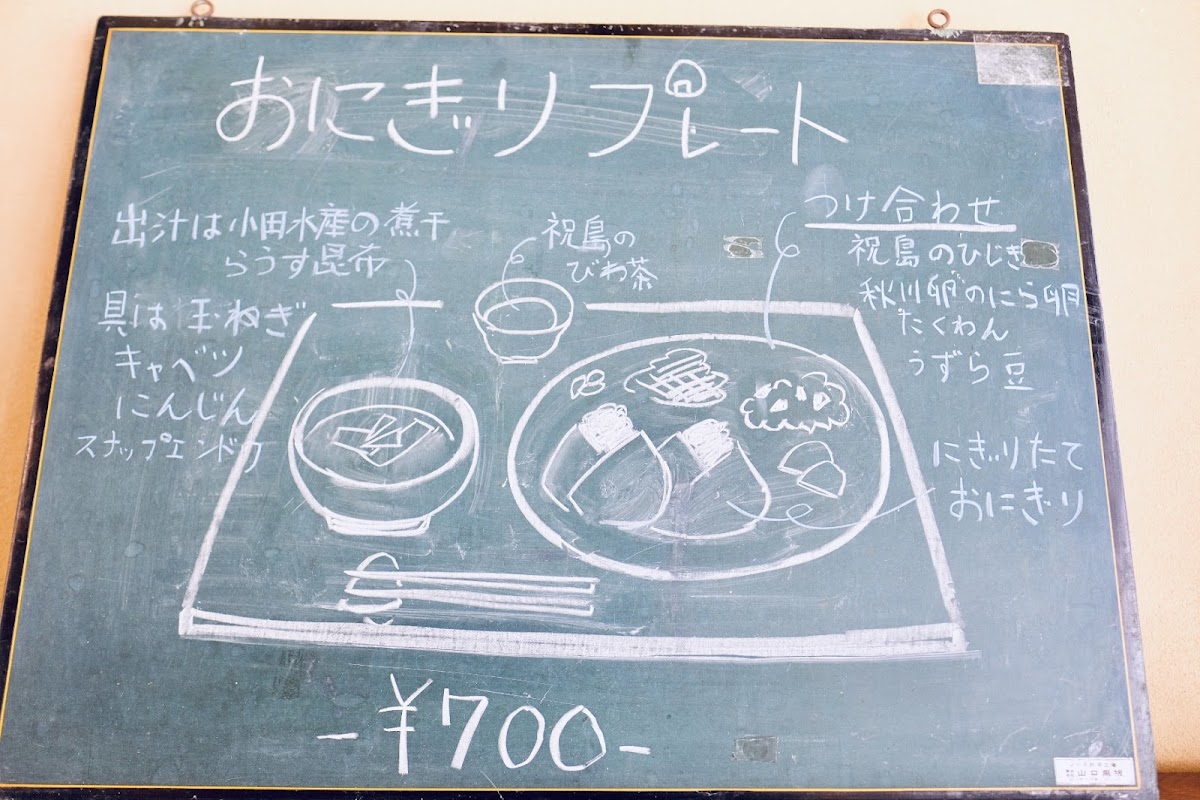 おにぎりプレート
出汁は小田水産の煮干
らうす昆布
具は玉ねぎ
キャベツ
にんじん
スナップエンドウ
祝島の
びわ茶
つけ合わせ
祝島のひじき
秋川卵のにら卵
たくわん
うずら豆
にぎりたて
おにぎり
-¥700-